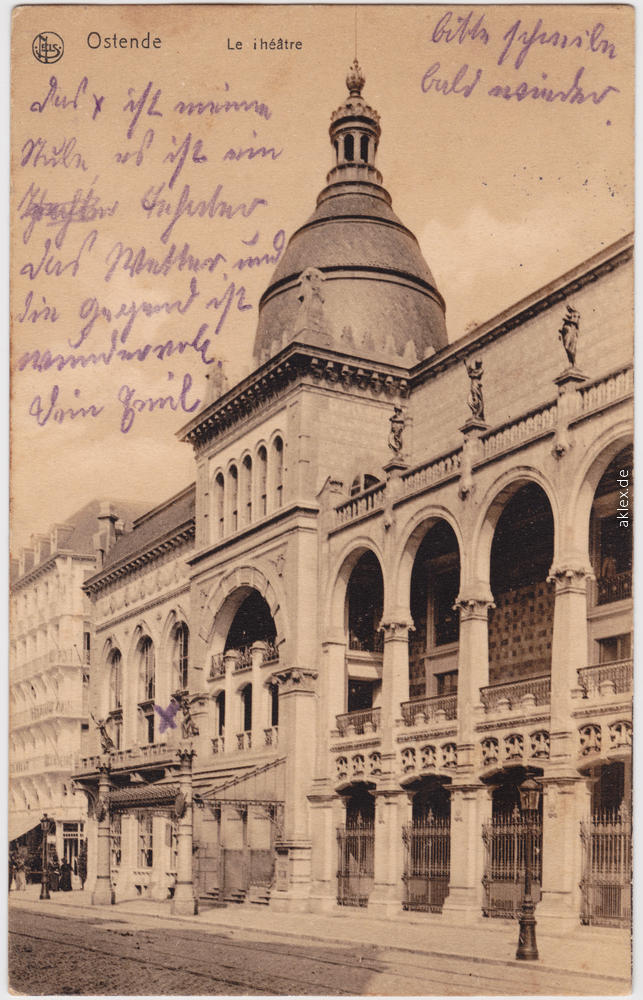 NELS
Ostende
Le théâtre
bitte schreibe
bald wieder.
Das x ist meine
Stube, es ist ein
Fenster
das Wetter und
die Gegend ist
wundervoll
Dein Emil
x
aklex.de